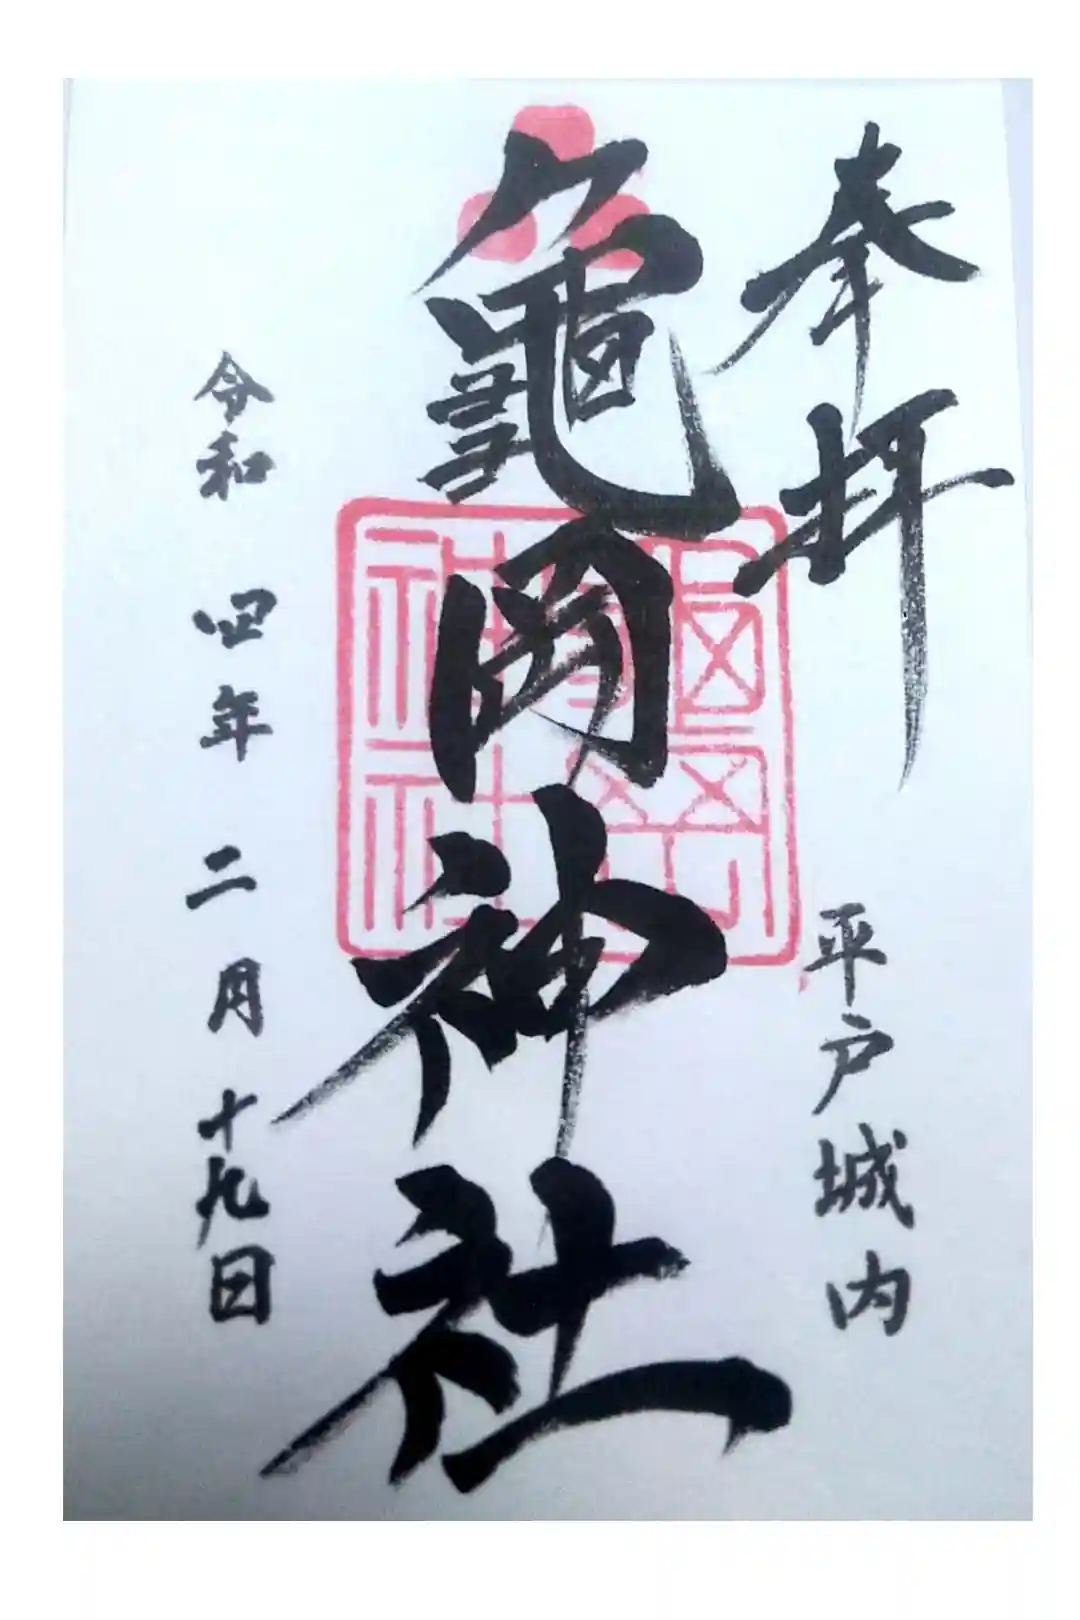 奉拝
平戸城内
龜岡神社
令和四年二月十九日